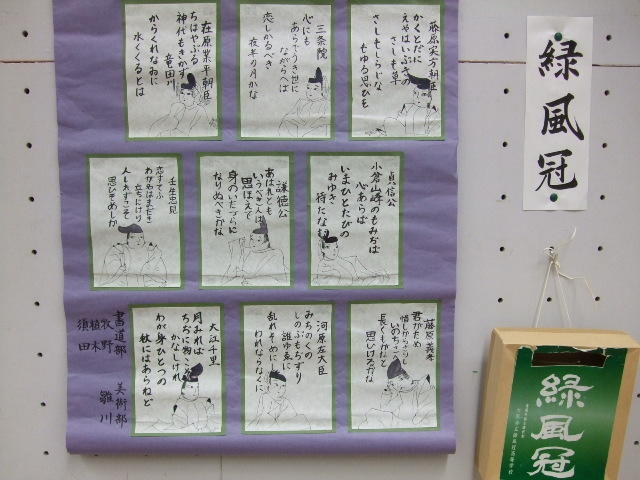 藤原実方朝臣
かくとだに
えやはいぶきの
さしも草
さしもしらじな
もゆる思ひを
三条院
心にも
あらでうき世に
ながらへば
恋しかるべき
夜半の月かな
在原業平朝臣
ちはやぶる
神代もきかず
竜田川
からくれなゐに
水くくるとは
貞信公
小倉山峰のもみぢば
心あらば
いまひとたびの
みゆき
待たなむ
謙徳公
あはれとも
いうべき人は
思ほえで
身のいたづらに
なりぬべきかな
壬生忠見
恋すてふ
わが名はまだき
立ちにけり
人しれずこそ
思ひそめしか
藤原義孝
君がため
惜しからざりし
いのちさへ
長くもがなと
思いけるかな
河原左大臣
みちのくの
しのぶもぢずり
誰ゆゑに
乱れそめにし
われならなくに
大江千里
月みれば
ちぢに物こそ
かなしけれ
わが身ひとつの
秋にはあらねど
書道部
牧野
植木
須田
美術部
雛川
緑風冠
緑風冠